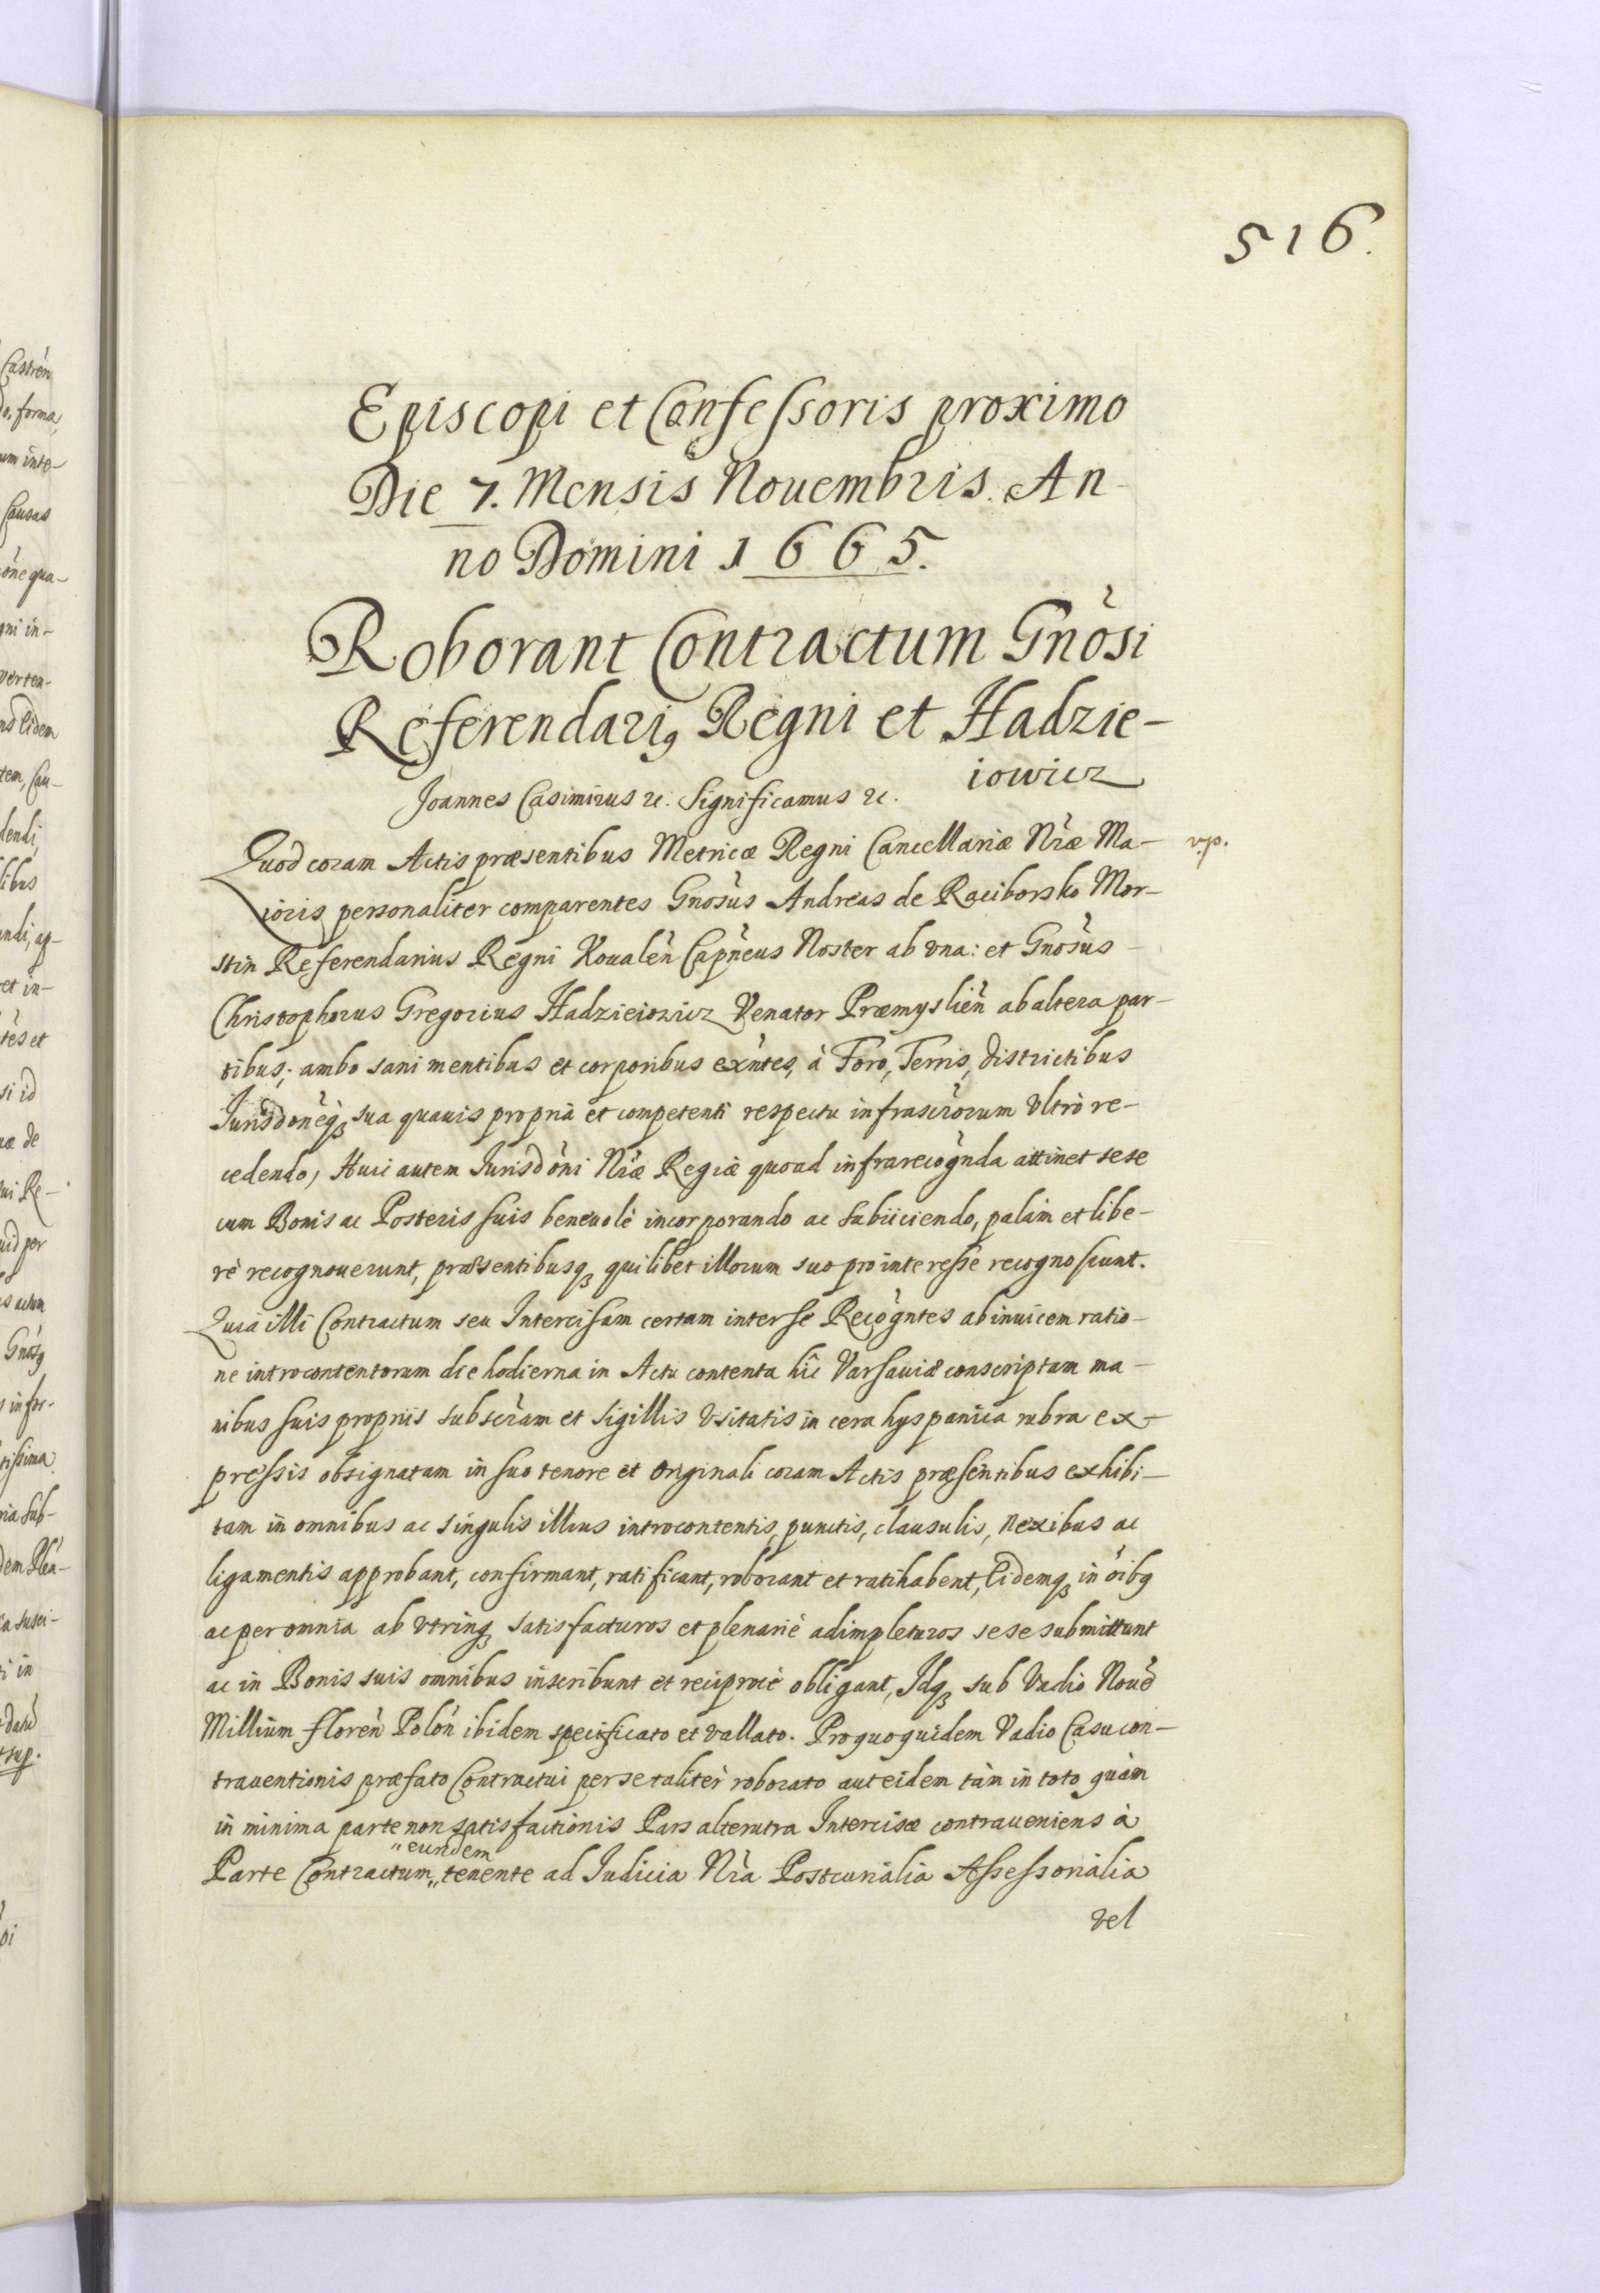 516.
Episcopi et Confessoris proximo
Die 7. Mensis Nouembris. An-
no Domini 1665.
Roborant Contractum Gnosi
Referendarij Regni et Hadzie-
iowicz
Joannes Casimirus etc. Significamus etc.
Quod coram Actis præsentibus Metricæ Regni Cancellariæ Nræ Ma- v.p.
ioris personaliter comparentes Gnosus Andreas de Raciborsko Mor-
stin Referendarius Regni Koualen Capneus Noster ab vna: et Gnosus
Christophorus Gregorius Hadzieiowicz Venator Præmyslien ab altera par-
tibus; ambo sani mentibus et corporibus exntes, à Foro, Terris, districtibus
Jurisdoneq3 sua quauis propriâ et competenti respectu infrascrorum Vltrò re-
cedendo, Huic autem Jurisdoni Nræ Regiæ quoad infrarecognda attinet sese
cum Bonis ac Posteris suis beneuolè incorporando ac subiiciendo, palàm et libe-
rè recognouerunt, præsentibusq3 quilibet illorum suo pro interesse recognoscunt.
Quia illi Contractum seu Intercisam certam inter se Recogntes ab inuicem ratio-
ne introcontentorum die hodierna in Actu contenta hîc Varsauiæ conscriptam ma-
nibus suis proprijs subscram et sigillis Vsitatis in cera hyspanica rubra ex-
pressis obsignatam in suo tenore et Originali coram Actis præsentibus exhibi-
tam in omnibus ac singulis illius introcontentis, punctis, clausulis, Nexibus ac
ligamentis approbant, confirmant, ratificant, roborant et ratihabent, Eidemq3 in oibg
ac per omnia ab vtrinq3 satisfacturos et plenariè adimpleturos sese submittunt
ac in Bonis suis omnibus inscribunt et reciprocè obligant, Jdq3 sub Vadio Noue
Millium floren Polon ibidem specificato et vallato. Pro quo quidem Vadio Casu con-
trauentionis præfato Contractui per se taliter roborato aut eidem tàm in toto quàm
in minima parte non satisfactionis Pars alterutra Intercisæ contraueniens à
"eundem
Parte Contractum " tenente ad Judicia Nra Postcurialia Assessorialia
vel